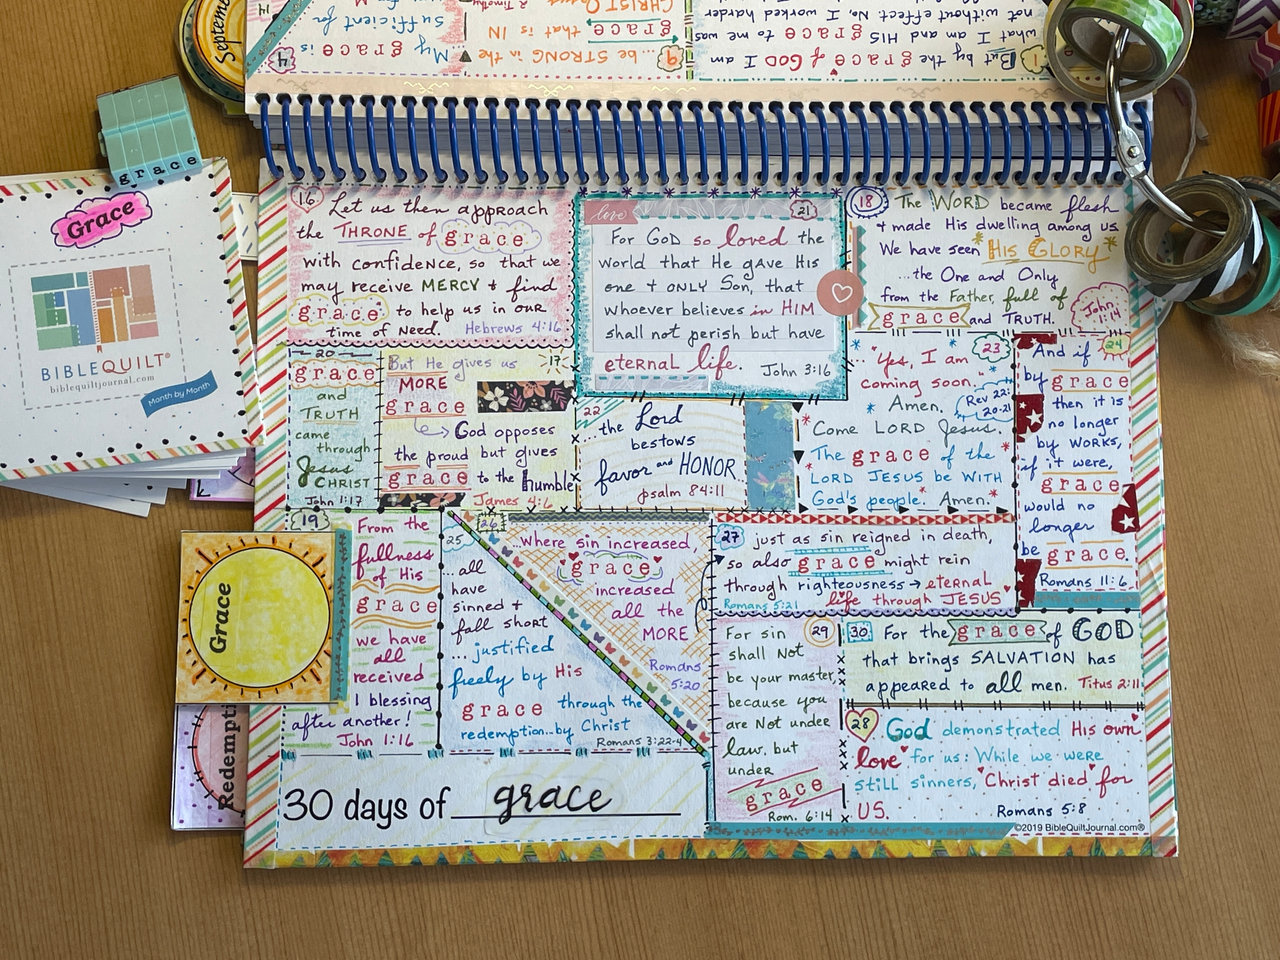 September
14
Sufficient for
My grace is
4
2 Timothy
CHRIST
that is IN
grace
... be STRONG in the
9
not without effect. No, I worked harder
what I am and HIS grace to me was
But by the grace of GOD I am
1
grace
Grace
BIBLEQUILT®
biblequiltjournal.com
Month by Month
Grace
Redempti
16
Let us then approach
the THRONE of grace
with confidence, so that we
may receive MERCY + find
grace to help us in our
time of need. Hebrews 4:16
love
21
For GOD so loved the
world that He gave His
one + ONLY Son, that
whoever believes in HIM
shall not perish but have
eternal life. John 3:16
18
The WORD became flesh
+ made His dwelling among us.
We have seen His GLORY
...the One and Only
from the Father, full of
grace and TRUTH.
John 1:14
20
grace
and
TRUTH
came
through
Jesus
CHRIST
John 1:17
17
But He gives us
MORE
grace
God opposes
the proud but gives
grace to the humble
James 4:6
22
...the Lord
bestows
favor and HONOR...
psalm 84:11
23
"Yes, I am
coming soon."
Amen.
Rev 22:
20-21
Come LORD Jesus.
The grace of the
LORD JESUS be WITH
God's people. Amen.
24
And if
by grace
then it is
no longer
by WORKS,
if it were,
grace
would no
longer
be grace.
Romans 11:6
19
From the
fullness
of His
grace
we have
all
received
1 blessing
after another!
John 1:16
25
...all
have
sinned +
fall short
... justified
freely by His
grace through the
redemption...by Christ
Romans 3:22-4
26
...where sin increased,
grace
increased
all the
MORE
Romans
5:20
27
just as sin reigned in death,
so also grace might rein
through righteousness → eternal
life through JESUS
Romans 5:21
29
For sin
shall Not
be your master,
because you
are Not under
law, but
under
grace
Rom. 6:14
30
For the grace of GOD
that brings SALVATION has
appeared to all men. Titus 2:11
28
God demonstrated His own
love for us: While we were
still sinners, Christ died for
US.
Romans 5:8
30 days of grace
©2019 BibleQuiltJournal.com®